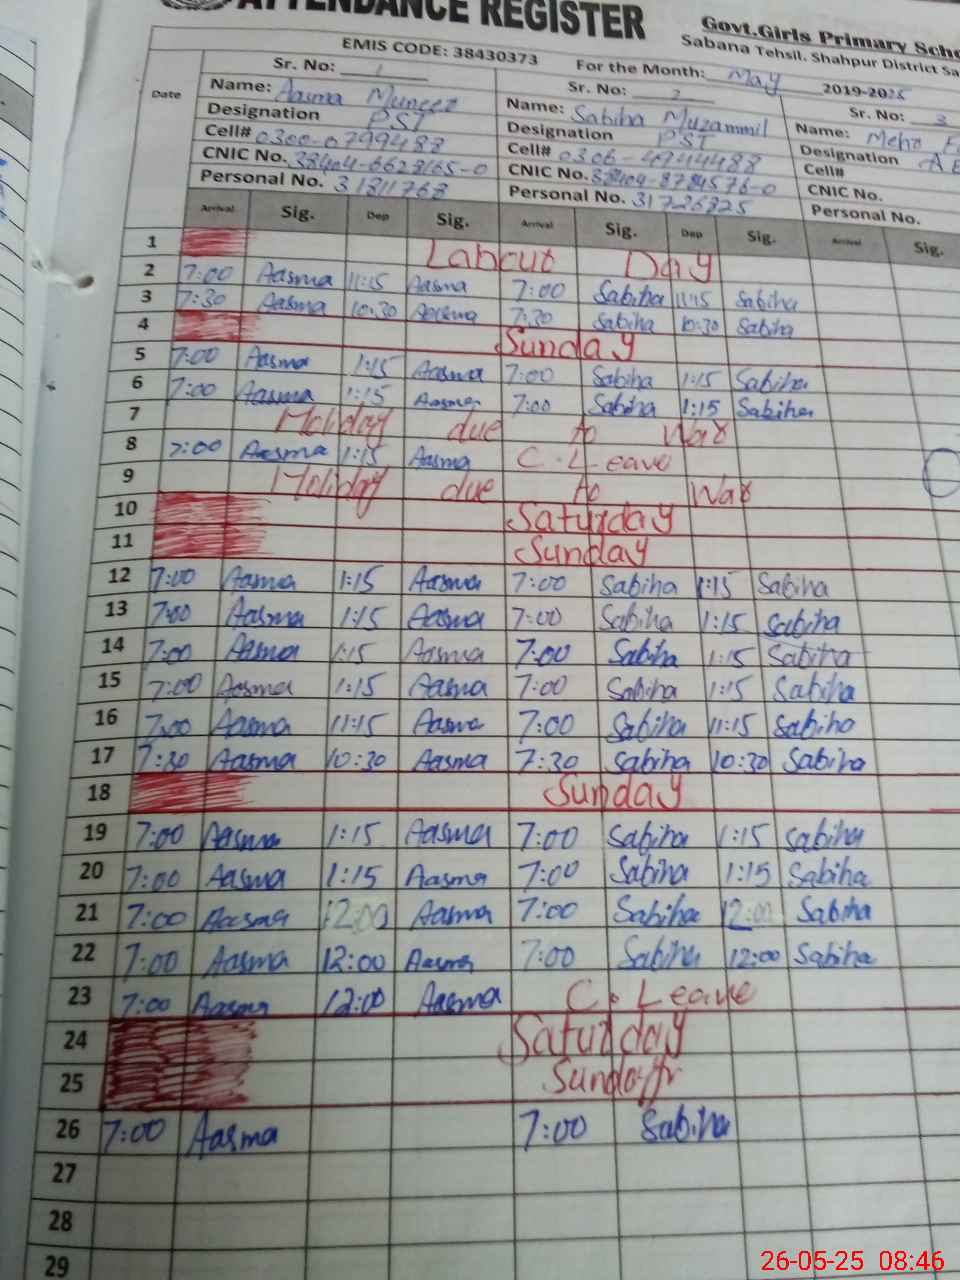 ATTENDANCE REGISTER
Govt.Girls Primary
EMIS CODE: 38430373
Sabana Tehsil. Shahpur District
For the Month: May 2019-2025
Date
Sr. No: 1 Sr. No: 2 Sr. No: 3
Name: Aasma Muneer Name: Sabiha Muzammil Name:
Designation PST Designation PST Designation
Cell# 0300-0799488 Cell# Cell#
CNIC No. 38404-6628165-0 CNIC No. CNIC No.
Personal No. 31811768 Personal No. 31726825 Personal No.
Arrival Sig. Dep Sig. Arrival Sig. Dep Sig. Arrival Sig.
1 Labour Day
2 7:00 Aasma 11:15 Aasma 7:00 Sabiha 11:15 Sabiha
3 7:30 Aasma 10:30 Aasma 7:30 Sabiha 10:30 Sabiha
4 Sunday
5 7:00 Aasma 1:15 Aasma 7:00 Sabiha 1:15 Sabiha
6 7:00 Aasma 1:15 Aasma 7:00 Sabiha 1:15 Sabiha
7 Holiday due to War
8 7:00 Aasma 1:15 Aasma C.Leave
9 Holiday due to War
10 Saturday
11 Sunday
12 7:00 Aasma 1:15 Aasma 7:00 Sabiha 1:15 Sabiha
13 7:00 Aasma 1:15 Aasma 7:00 Sabiha 1:15 Sabiha
14 7:00 Aasma 1:15 Aasma 7:00 Sabiha 1:15 Sabiha
15 7:00 Aasma 1:15 Aasma 7:00 Sabiha 1:15 Sabiha
16 7:00 Aasma 11:15 Aasma 7:00 Sabiha 11:15 Sabiha
17 7:30 Aasma 10:30 Aasma 7:30 Sabiha 10:30 Sabiha
18 Sunday
19 7:00 Aasma 1:15 Aasma 7:00 Sabiha 1:15 Sabiha
20 7:00 Aasma 1:15 Aasma 7:00 Sabiha 1:15 Sabiha
21 7:00 Aasma 12:00 Aasma 7:00 Sabiha 12:00 Sabiha
22 7:00 Aasma 12:00 Aasma 7:00 Sabiha 12:00 Sabiha
23 7:00 Aasma 12:00 Aasma C.Leave
24 Saturday
25 Sunday
26 7:00 Aasma 7:00 Sabiha
27
28
29
26-05-25 08:46